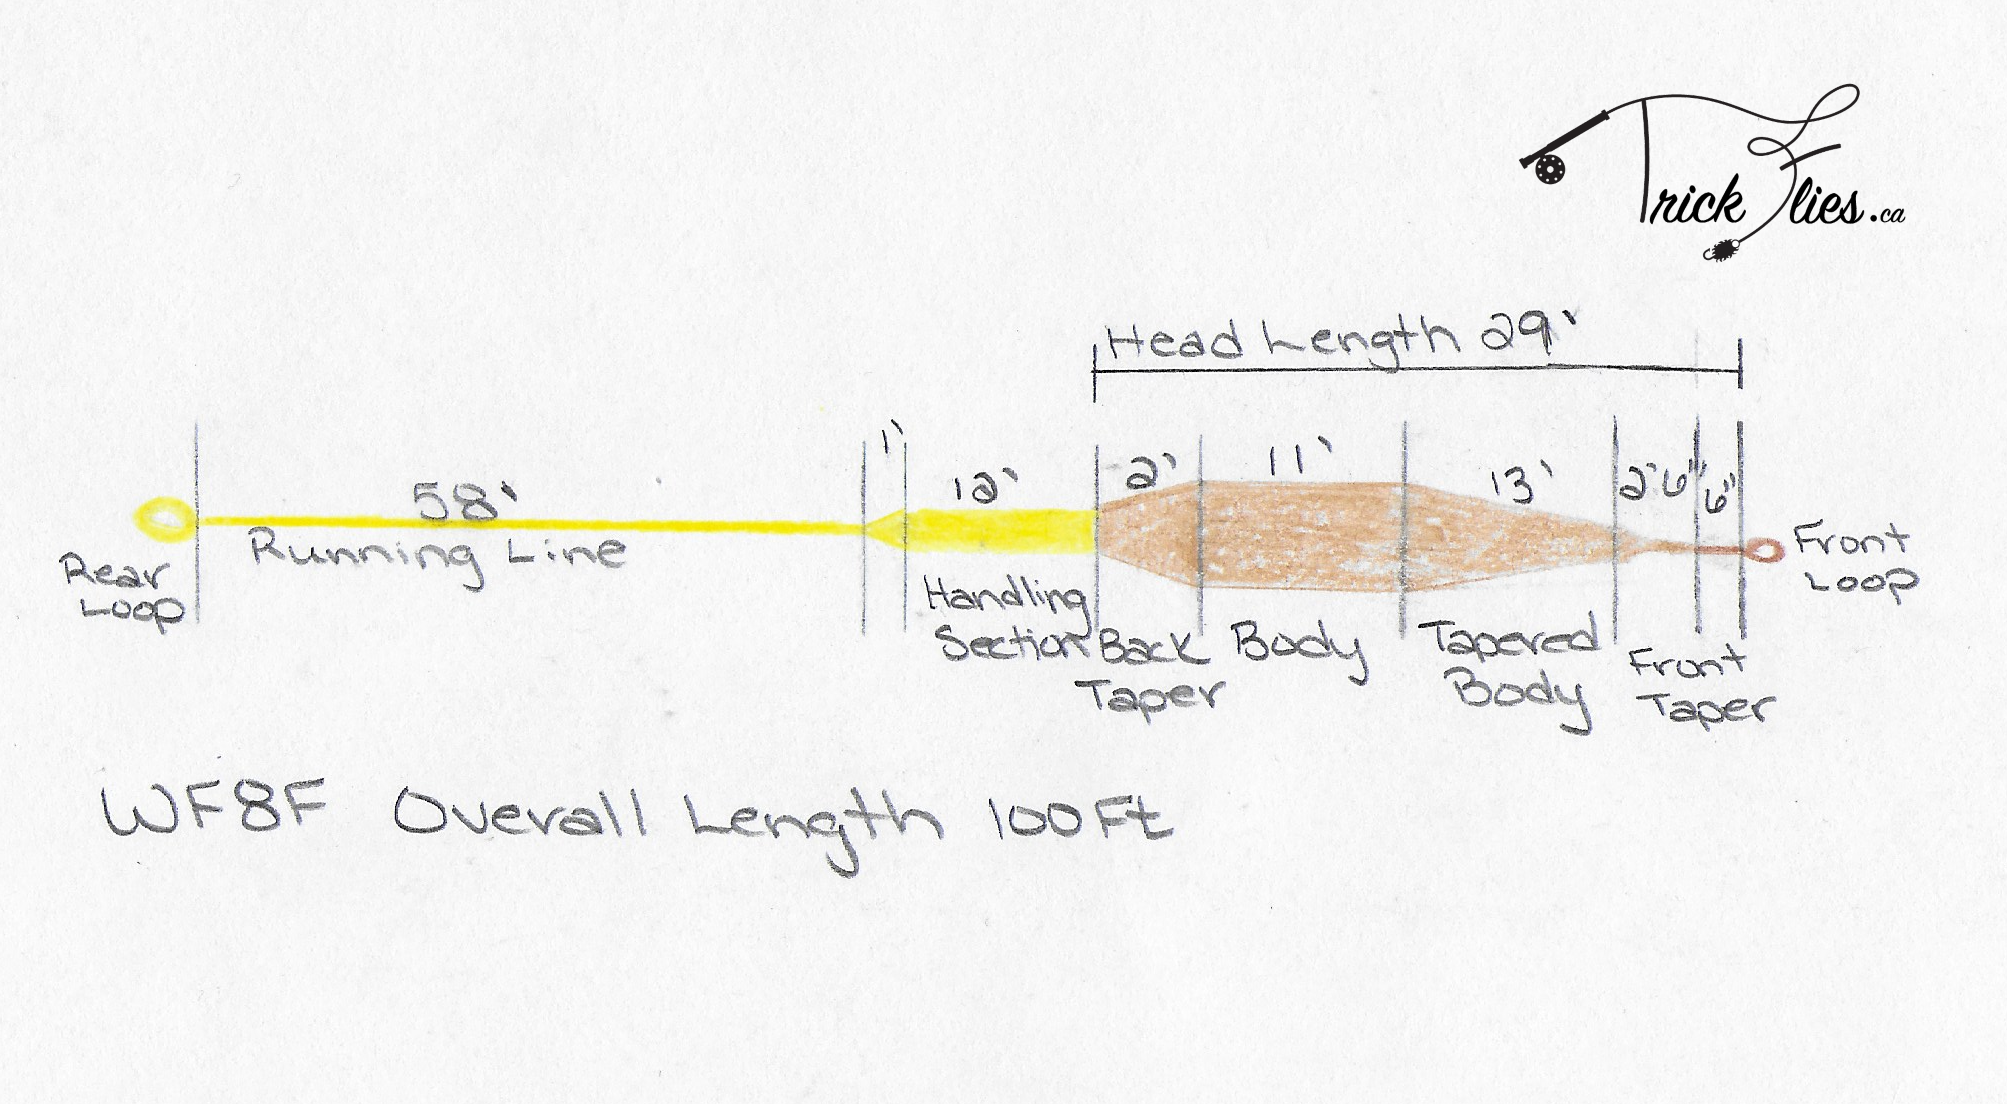 Trick Flies.ca
Head Length 29'
1'
58'
12'
2'
11'
13'
2'6"
6"
Running Line
Rear
Loop
Handling
Section
Back
Taper
Body
Tapered
Body
Front
Taper
Front
Loop
WF8F Overall Length 100Ft